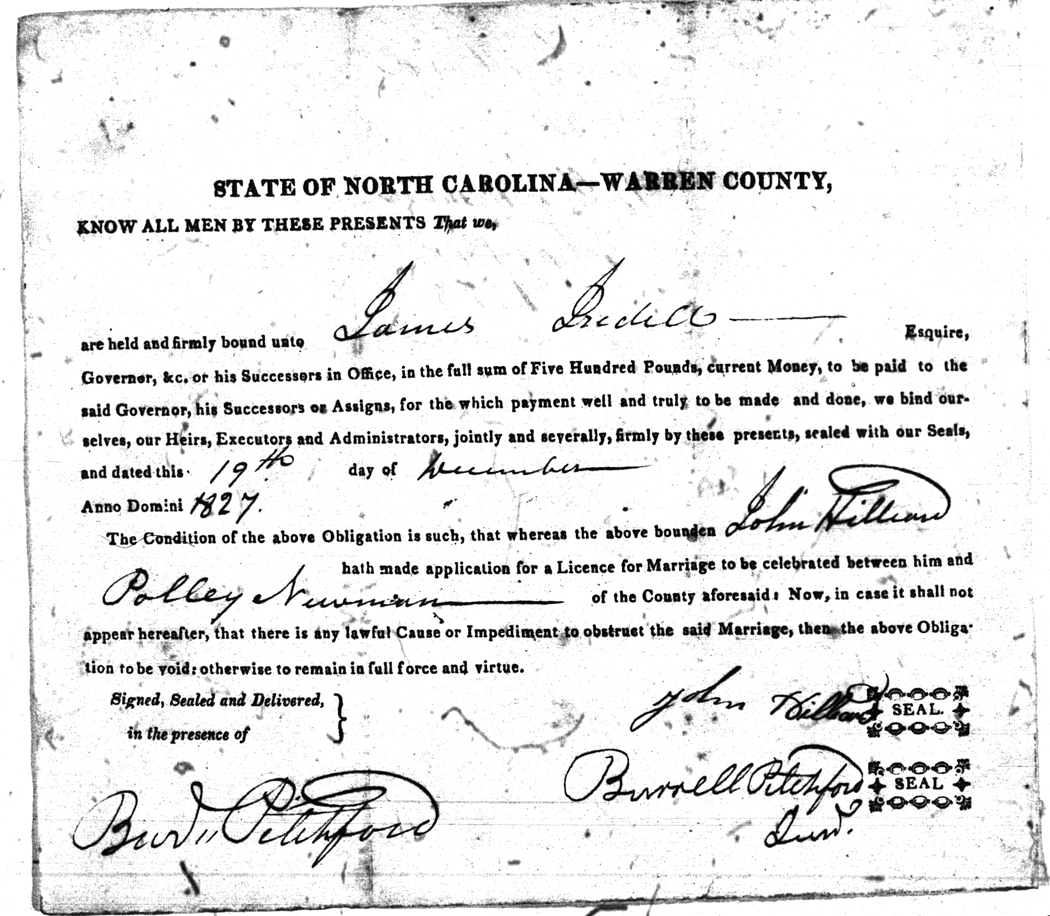 STATE OF NORTH CAROLINA—WARREN COUNTY,
KNOW ALL MEN BY THESE PRESENTS That we,
are held and firmly bound unto James Iredell Esquire,
Governor, &c. or his Successors in Office, in the full sum of Five Hundred Pounds, current Money, to be paid to the
said Governor, his Successors or Assigns, for the which payment well and truly to be made and done, we bind our-
selves, our Heirs, Executors and Administrators, jointly and severally, firmly by these presents, sealed with our Seals,
and dated this 19th day of December
Anno Domini 1827.
The Condition of the above Obligation is such, that whereas the above bounden John Hilliard
hath made application for a Licence for Marriage to be celebrated between him and
Polley Newman of the County aforesaid: Now, in case it shall not
appear hereafter, that there is any lawful Cause or Impediment to obstruct the said Marriage, then the above Obliga-
tion to be void: otherwise to remain in full force and virtue.
Signed, Sealed and Delivered,
in the presence of
John Hilliard SEAL.
Burrell Pitchford SEAL
Junr.
Pitchford